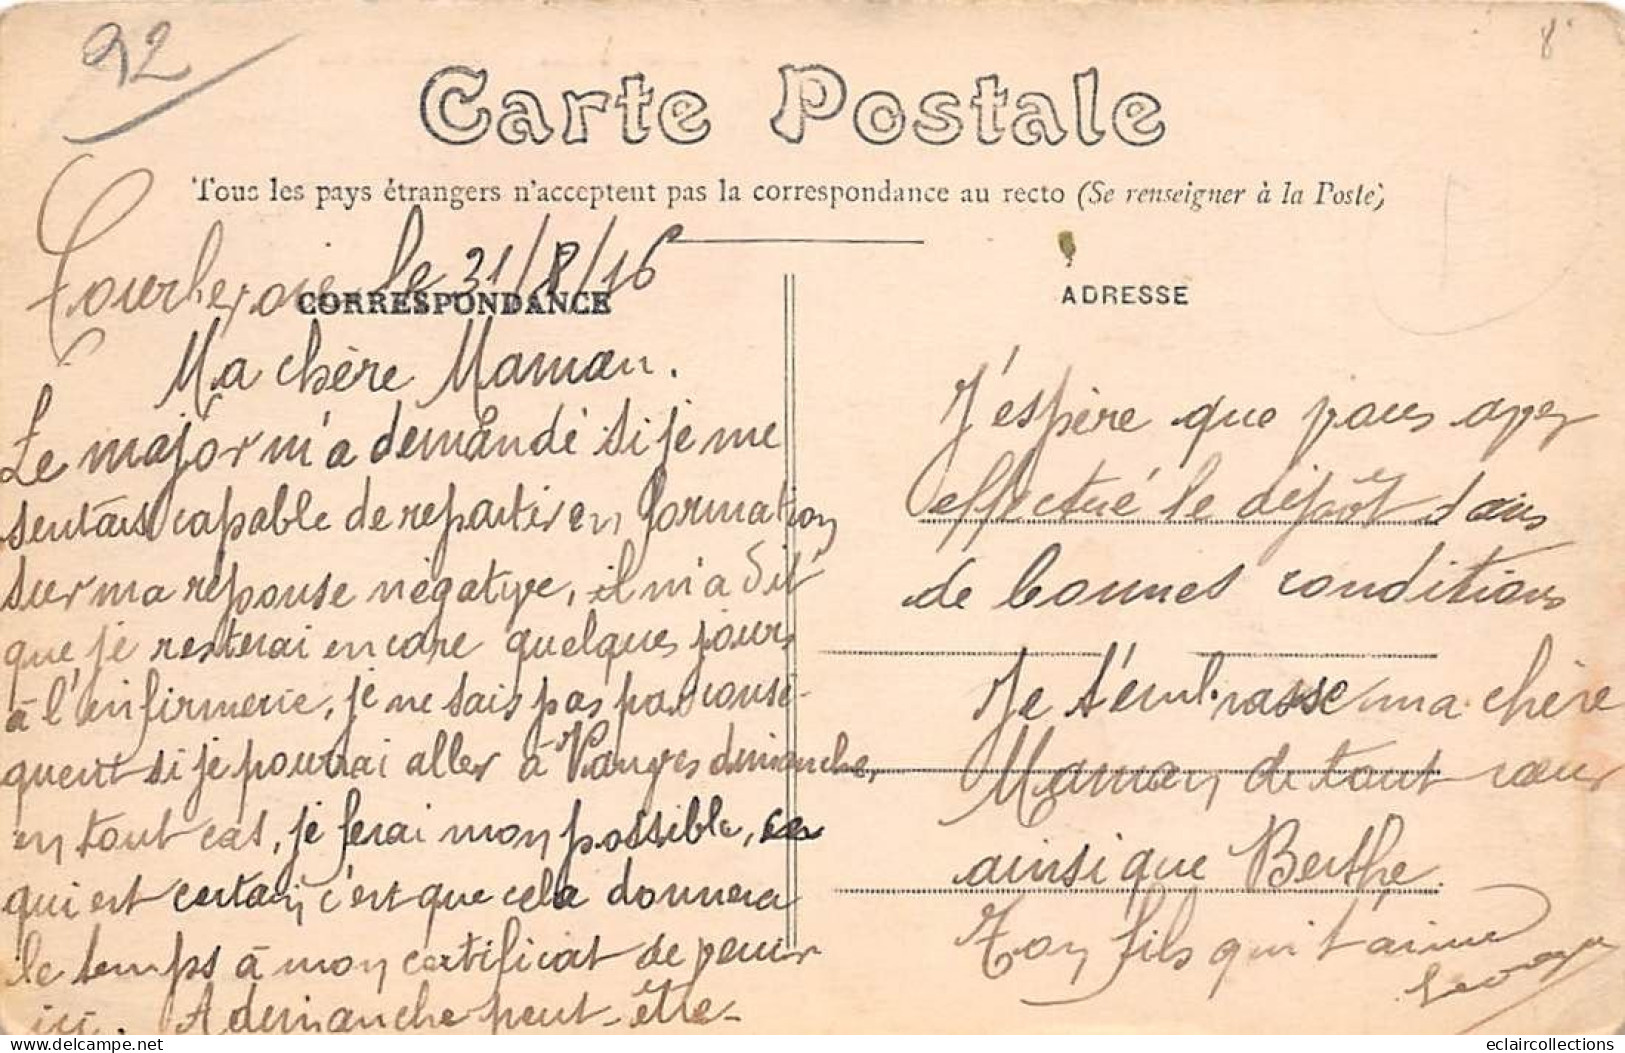 92
8
Carte Postale
Tous les pays étrangers n'acceptent pas la correspondance au recto (Se renseigner à la Poste)
Courbevoie le 31/8/16
CORRESPONDANCE
Ma chère Maman.
Le major m'a demandé si je me
sentais capable de repartir en formation
sur ma réponse négative, il m'a dit
que je resterai encore quelques jours
à l'infirmerie, je ne sais pas par consé-
quent si je pourrai aller à Vanves dimanche,
en tout cas, je ferai mon possible, ce
qui est certain c'est que cela donnera
le temps à mon certificat de venir
ici. A dimanche peut-être-
ADRESSE
J'espère que vous avez
effectué le dépôt dans
de bonnes conditions
Je t'embrasse ma chère
Maman de tout cœur
ainsi que Berthe.
Ton fils qui t'aime
eclaircollections